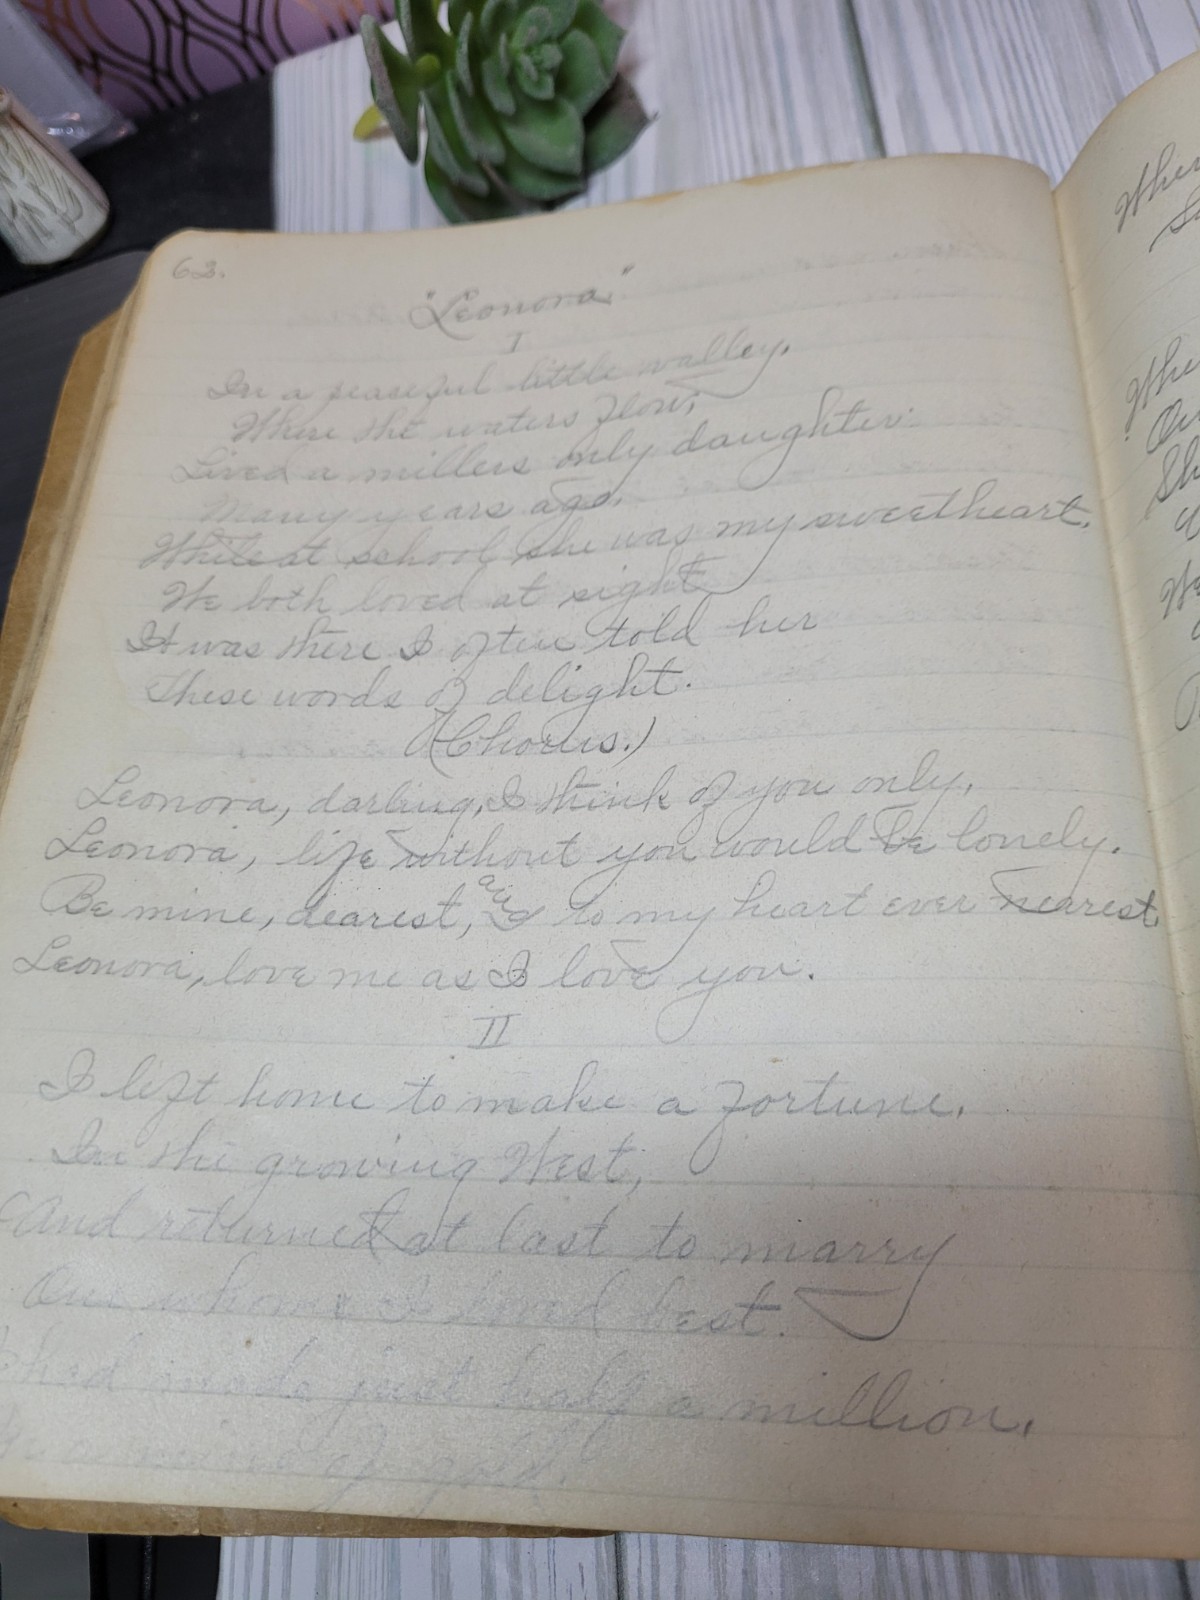 62.
"Leonora"
I
In a peaceful little valley,
Where the waters flow,
Lived a millers only daughter
Many years ago.
While at school she was my sweetheart,
We both loved at sight
It was there I often told her
These words of delight.
(Chorus.)
Leonora, darling, I think of you only,
Leonora, life without you would be lonely.
Be mine, dearest, and to my heart ever nearest,
Leonora, love me as I love you.
II
I left home to make a fortune,
In the growing West,
And returned at last to marry
One whom I loved best.
had made just half a million,
In a mine of gold.
When
Whe
Sh
We